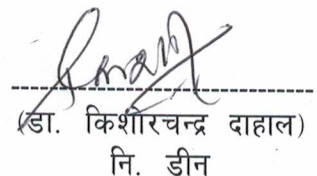 (डा. किशोरचन्द्र दाहाल)
नि. डीन